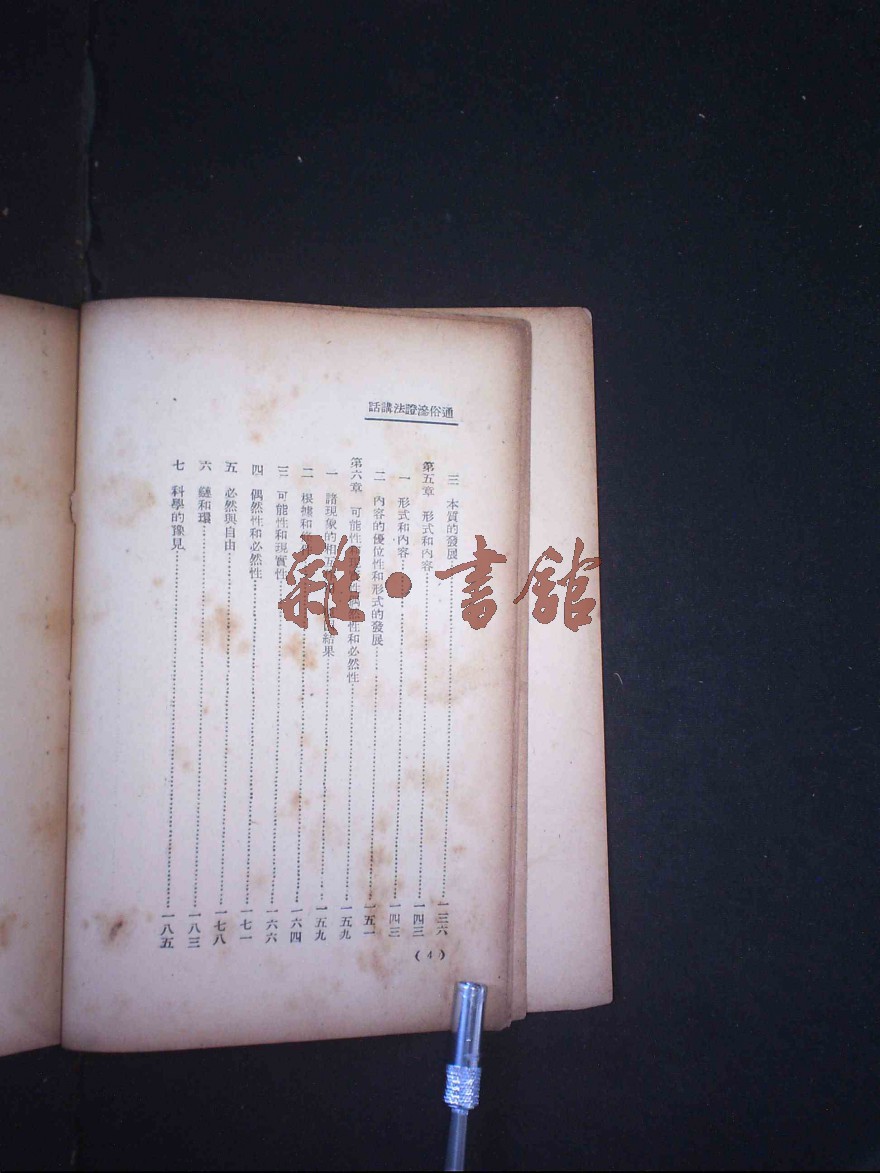 通俗辯證法講話
三 本質的發展……一三六
第五章 形式和內容……一四三
一 形式和內容……一四三
二 內容的優位性和形式的發展……一五一
第六章 可能性 性和必然性……一五九
一 諸現象的相互 結果……一五九
二 根據和……一六四
三 可能性和現實性……一六六
四 偶然性和必然性……一七一
五 必然與自由……一七八
六 鏈和環……一八三
七 科學的豫見……一八五
(4)
雜·書館